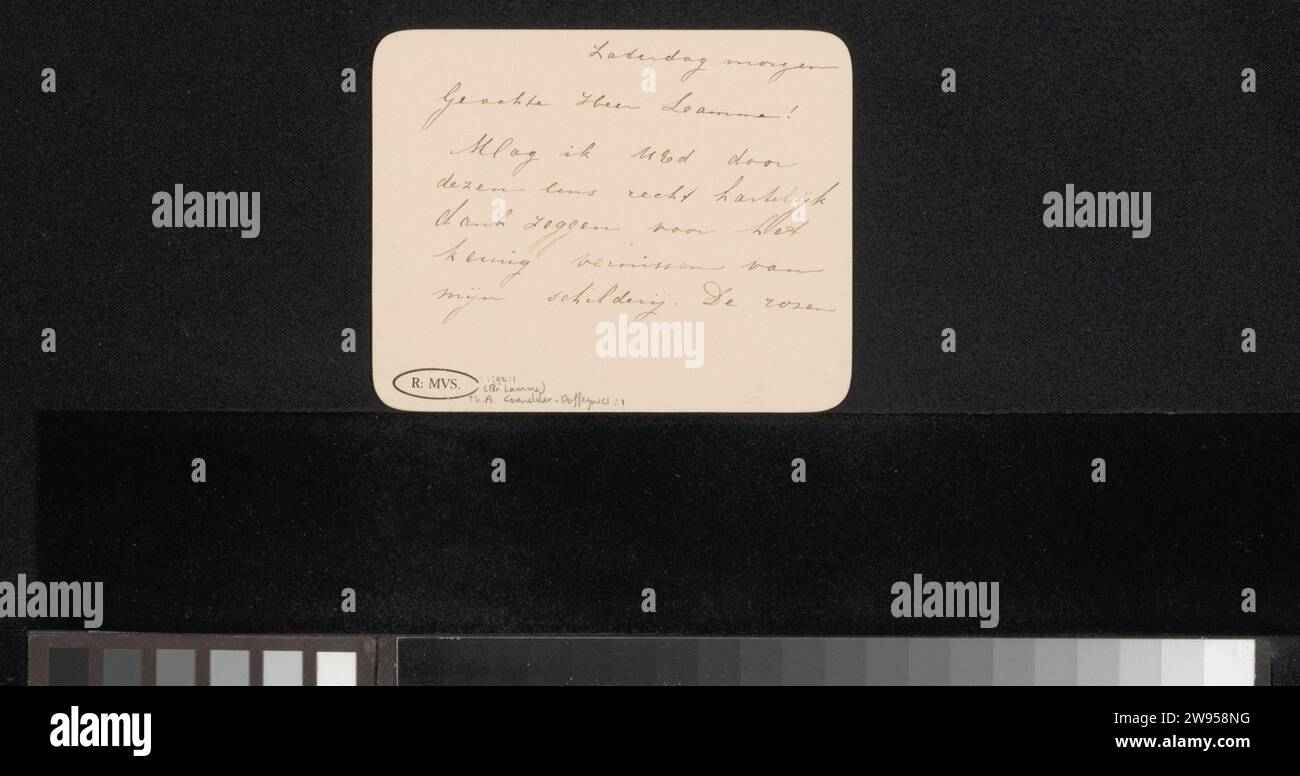 Zaterdag morgen
Geachte Heer Lamme!
Mag ik UEd door
dezen eens recht hartelijk
dank zeggen voor het
keurig vernissen van
mijn schilderij. De rozen
R: MVS.
(Pr Lamme)
Th. A. :1
alamy
Image ID: 2W958NG
www.alamy.com